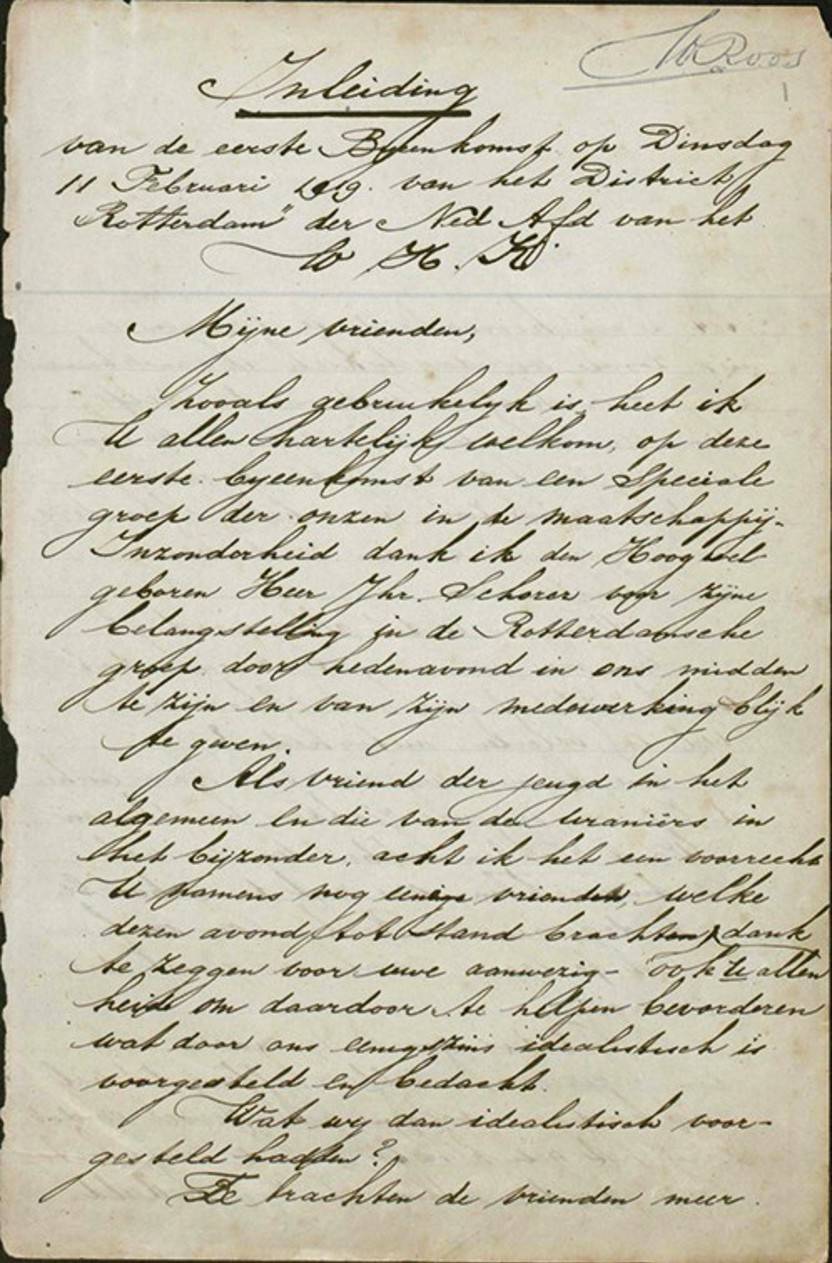 W Roos
1
Inleiding
van de eerste Byeenkomst op Dinsdag
11 Februari 1919. van het District
"Rotterdam" der Ned Afd van het
W H. K.
Mijne vrienden,
Zooals gebruikelyk is, heet ik
U allen hartelijk welkom, op deze
eerste byeenkomst van een Speciale
groep der onzen in de maatschappij.
Inzonderheid dank ik den Hoogwel
geboren Heer Jhr. Schorer voor zijne
belangstelling in de Rotterdamsche
groep door hedenavond in ons midden
te zijn en van zijn medewerking blijk
te geven.
Als vriend der jeugd in het
algemeen en die van de uraniërs in
het bijzonder, acht ik het een voorrecht
U namens nog eenige vrienden, welke
dezen avond tot stand brachten, dank
te zeggen voor uwe aanwezig- ook U allen
heid om daardoor te helpen bevorderen
wat door ons eenigszins idealistisch is
voorgesteld en bedacht.
Wat wy dan idealistisch voor-
gesteld hadden?
brachten de vrienden meer